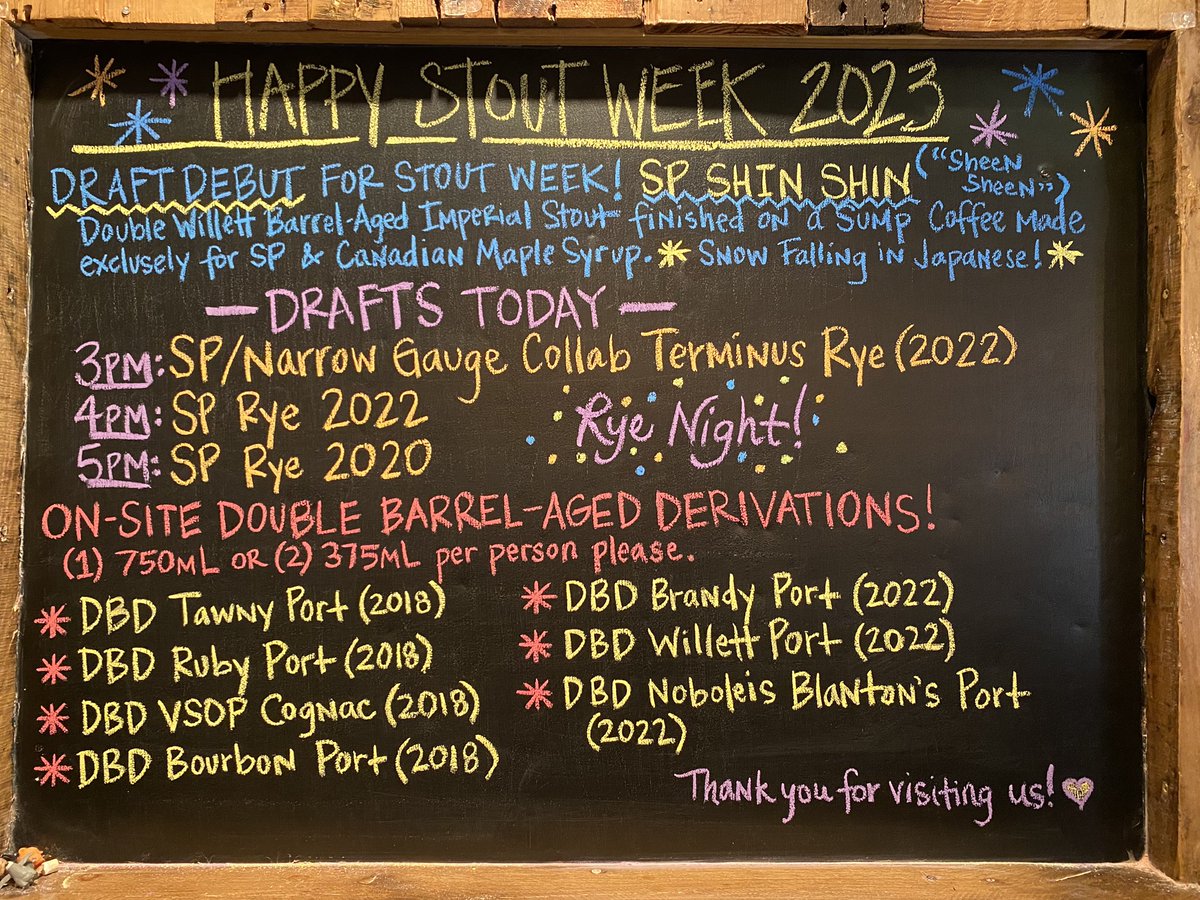 HAPPY STOUT WEEK 2023
DRAFT DEBUT FOR STOUT WEEK! SP SHIN SHIN ("Sheen Sheen")
Double Willett Barrel-Aged Imperial Stout finished on a Sump Coffee Made
exclusely for SP & Canadian Maple Syrup. Snow Falling in Japanese!
— DRAFTS TODAY —
3PM: SP/Narrow Gauge Collab Terminus Rye (2022)
4PM: SP Rye 2022
5PM: SP Rye 2020
Rye Night!
ON-SITE DOUBLE BARREL-AGED DERIVATIONS!
(1) 750mL OR (2) 375mL per person please.
* DBD Tawny Port (2018)
* DBD Ruby Port (2018)
* DBD VSOP Cognac (2018)
* DBD Bourbon Port (2018)
* DBD Brandy Port (2022)
* DBD Willett Port (2022)
* DBD Noboleis Blanton's Port
(2022)
Thank you for visiting us!